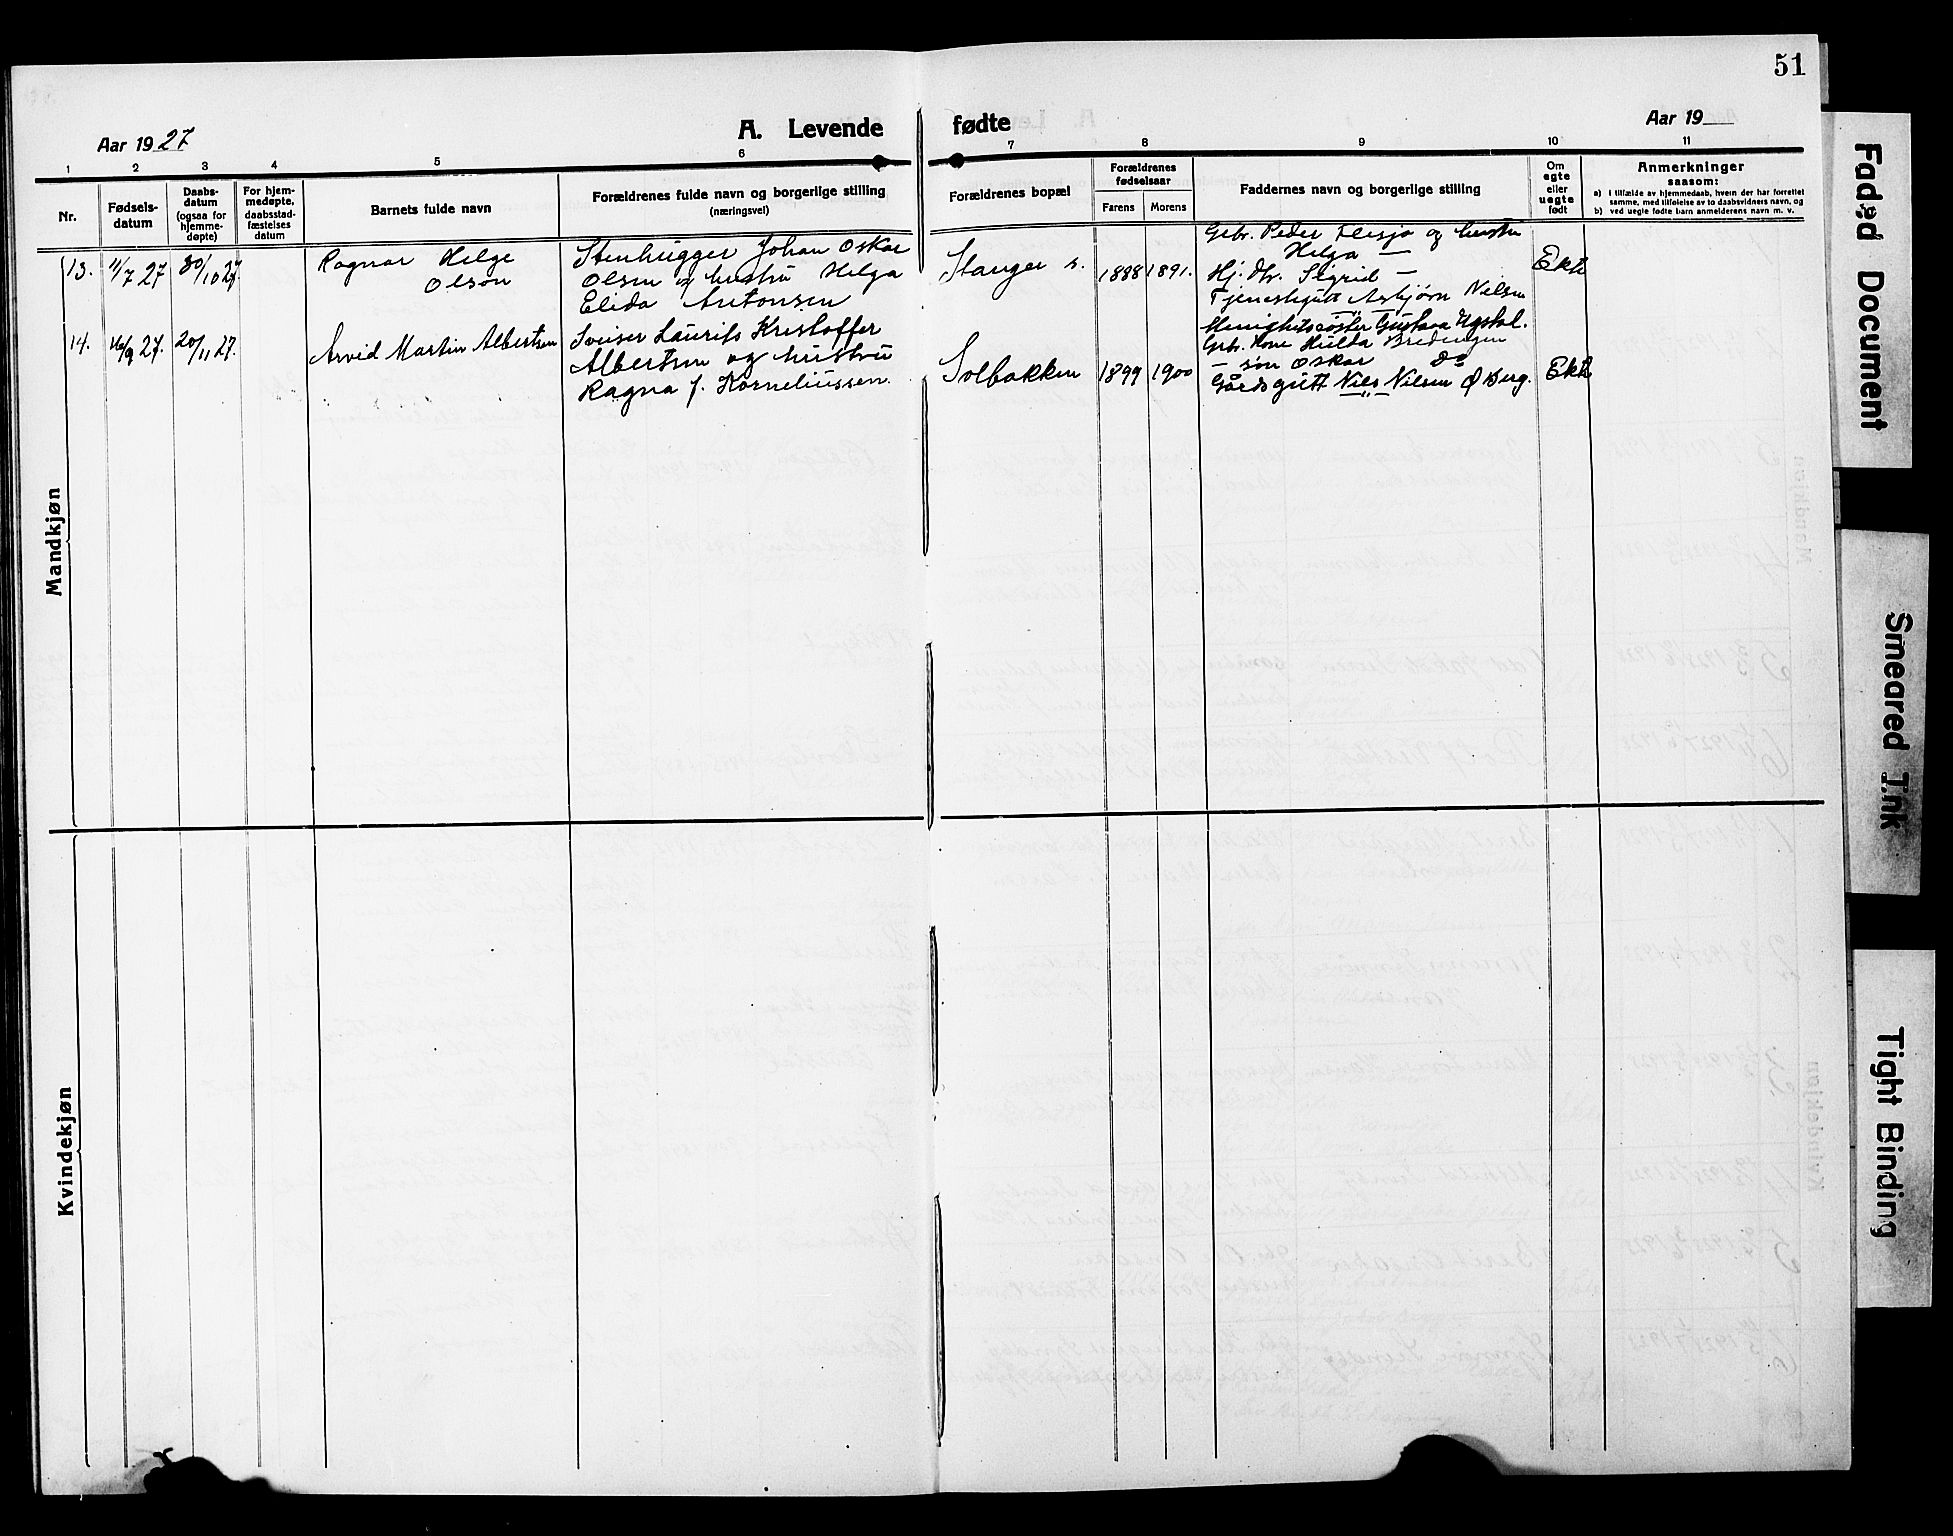 51
Aar 1927
A. Levende fødte
Aar 19
1 2 3 4 5 6 7 8 9 10 11
Nr.
Fødsels-
datum
Daabs-
datum
(ogsaa for
hjemme-
døpte)
For hjem-
medøpte,
daabsstad-
fæstelses
datum
Barnets fulde navn
Forældrenes fulde navn og borgerlige stilling
(næringsvei)
Forældrenes bopæl
Forældrenes
fødselsaar
Farens
Morens
Faddernes navn og borgerlige stilling
Om
egte
eller
uegte
født
Anmerkninger
saasom:
a) i tilfælde av hjemmedaab, hvem der har forrettet
samme, med tilføielse av to daabsvidners navn, og
b) ved uegte fødte barn anmelderens navn m. v.
Mandkjøn
13.
11/7 27
30/10 27
Ragnar Helge
Olsen
Stenhugger Johan Oskar
Olsen og hustru Helga
Elida Antonsen
Stanger
1888
1891.
Gbr. Peder Flesjø og hustru
Helga —
Hj. dtr. Sigrid —
Tjenestegutt Asbjørn Nilsen
Ekte
14.
16/9 27.
20/11 27.
Arvid Martin Albertsen
Sveiser Laurits Kristoffer
Albertsen og hustru
Ragna f. Korneliussen.
Solbakken
1899
1900
Menighetssøster Gustava
Gbr. Kone Hulda
— søn Oskar Do
Gårdsgutt Nils Nilsen Ø Berg.
— " —
Ekte
Kvindekjøn
Faded Document
Smeared Ink
Tight Binding